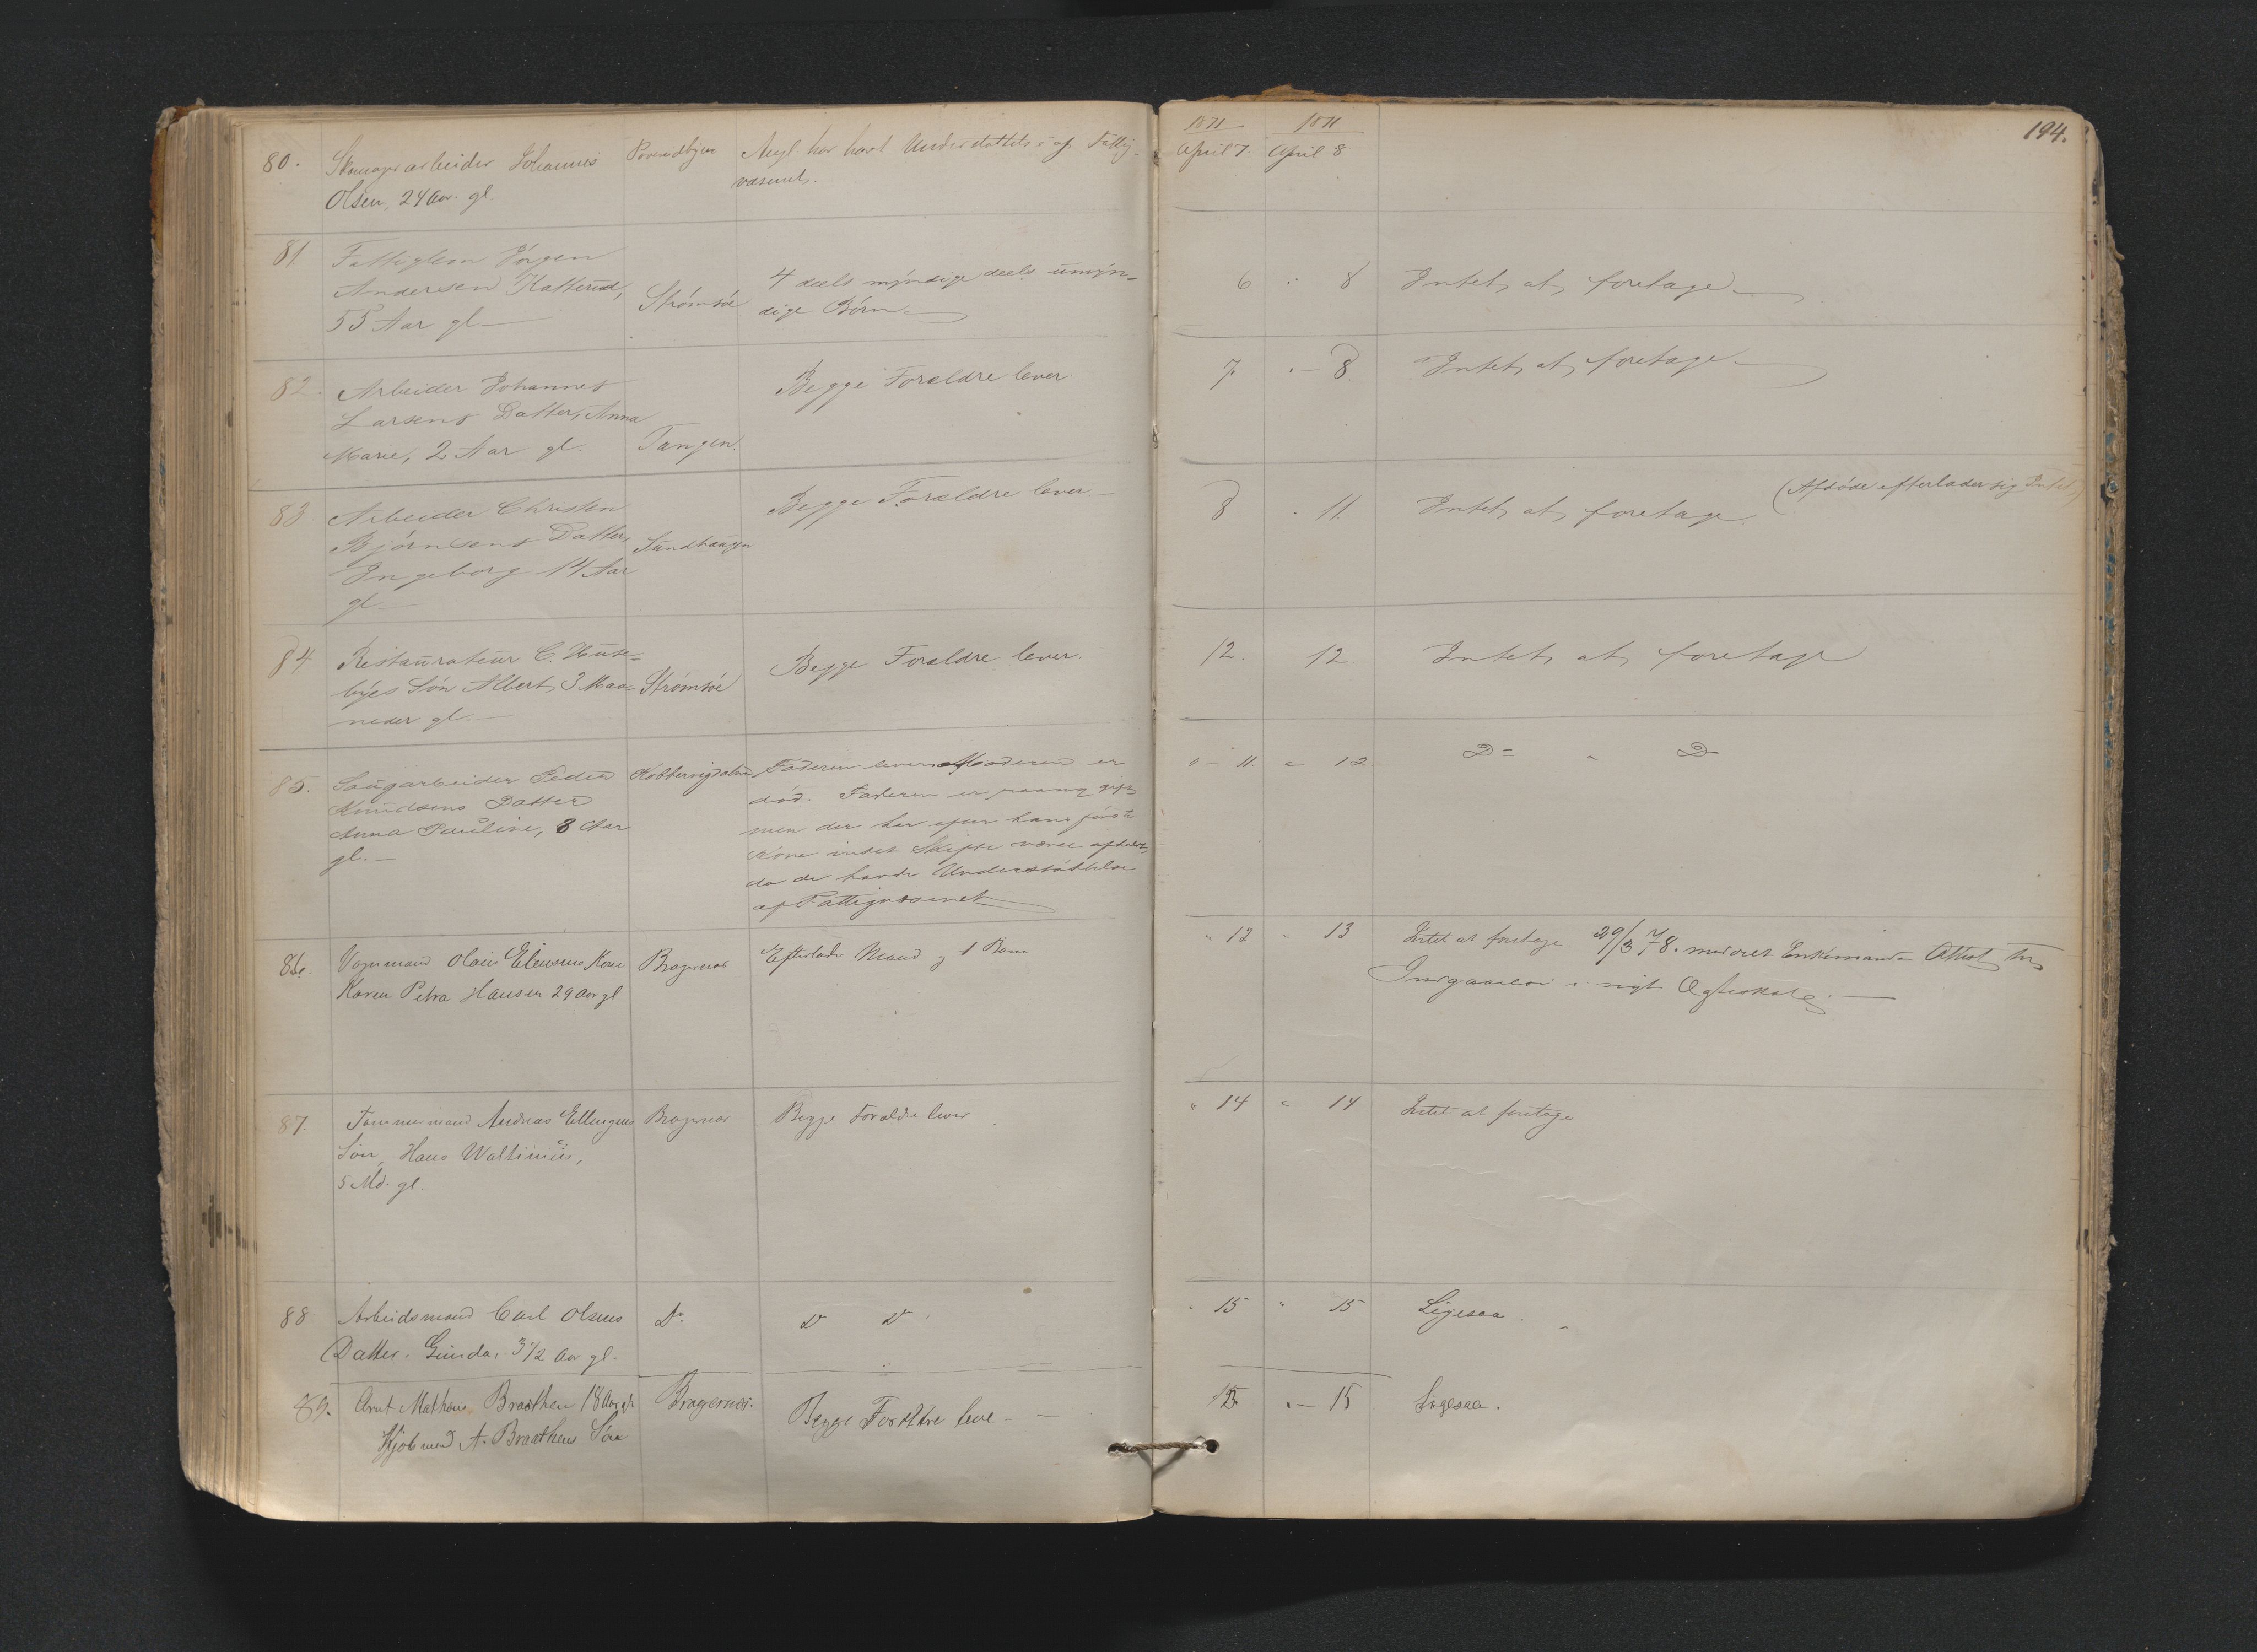 194.
1871 1871
April 7. April 8
80. Johannes
Olsen, 24 Aar gl.
Angl. har havt Understøttelse af Fattig-
væsenet.
81 Fattiglem Jørgen
Andersen Katterud,
55 Aar gl
Strømsøe
4 deels myndige deels umyn-
dige Børn
6 8 Intet at foretage
82. Arbeider Johannes
Larsens Datter, Anna
Marie, 2 Aar gl.
Tangen.
Begge Forældre lever
7. 8 Intet at foretage
83 Arbeider Christen
Bjørnsens Datter,
Ingeborg 14 Aar
gl
Sundhaugen
Begge Forældre lever
8 11. Intet at foretage. (Afdøde efterlader sig Intet)
84 Restaurateur C. Huse-
byes Søn Albert, 3 Maa-
neder gl.
Strømsøe
Begge Forældre lever.
12. 12 Intet at foretage
85. Saugarbeider Peder
Knudsens Datter
Anna Pauline, 8 Aar
gl.
Kobbervigdalen
Faderen lever Moderen er
død. Faderen er paany gift
men der har efter hans første
Kone intet Skifte været afholdt,
da de havde Understøttelse
af Fattigvæsenet
" 11. " 12. D= " D=
86. Vognmand Olaus Ellensens Kone
Karen Petra Hansen 29 Aar gl
Bragernæs
Efterlader Mand og 1 Barn
" 12 " 13 Intet at foretage 29/3 78. meddelt Enkemanden Attest til
Indgaaelse i nyt Ægteskab.
87. Tømmermand Andreas Ellingsens
Søn, Hans Waltinius,
5 Md. gl.
Bragernæs
Begge Forældre lever
" 14 " 14 Intet at foretage
88 Arbeidsmand Carl Olsens
Datter. Gunda, 3 1/2 Aar gl.
Do. D D
" 15 " 15 Ligesaa.
89. Arnt Mathæus Braathen 18 Aar gl.
Kjøbmand A. Braathens Søn
Bragernæs.
Begge Forældre leve
15 15 Ligesaa.